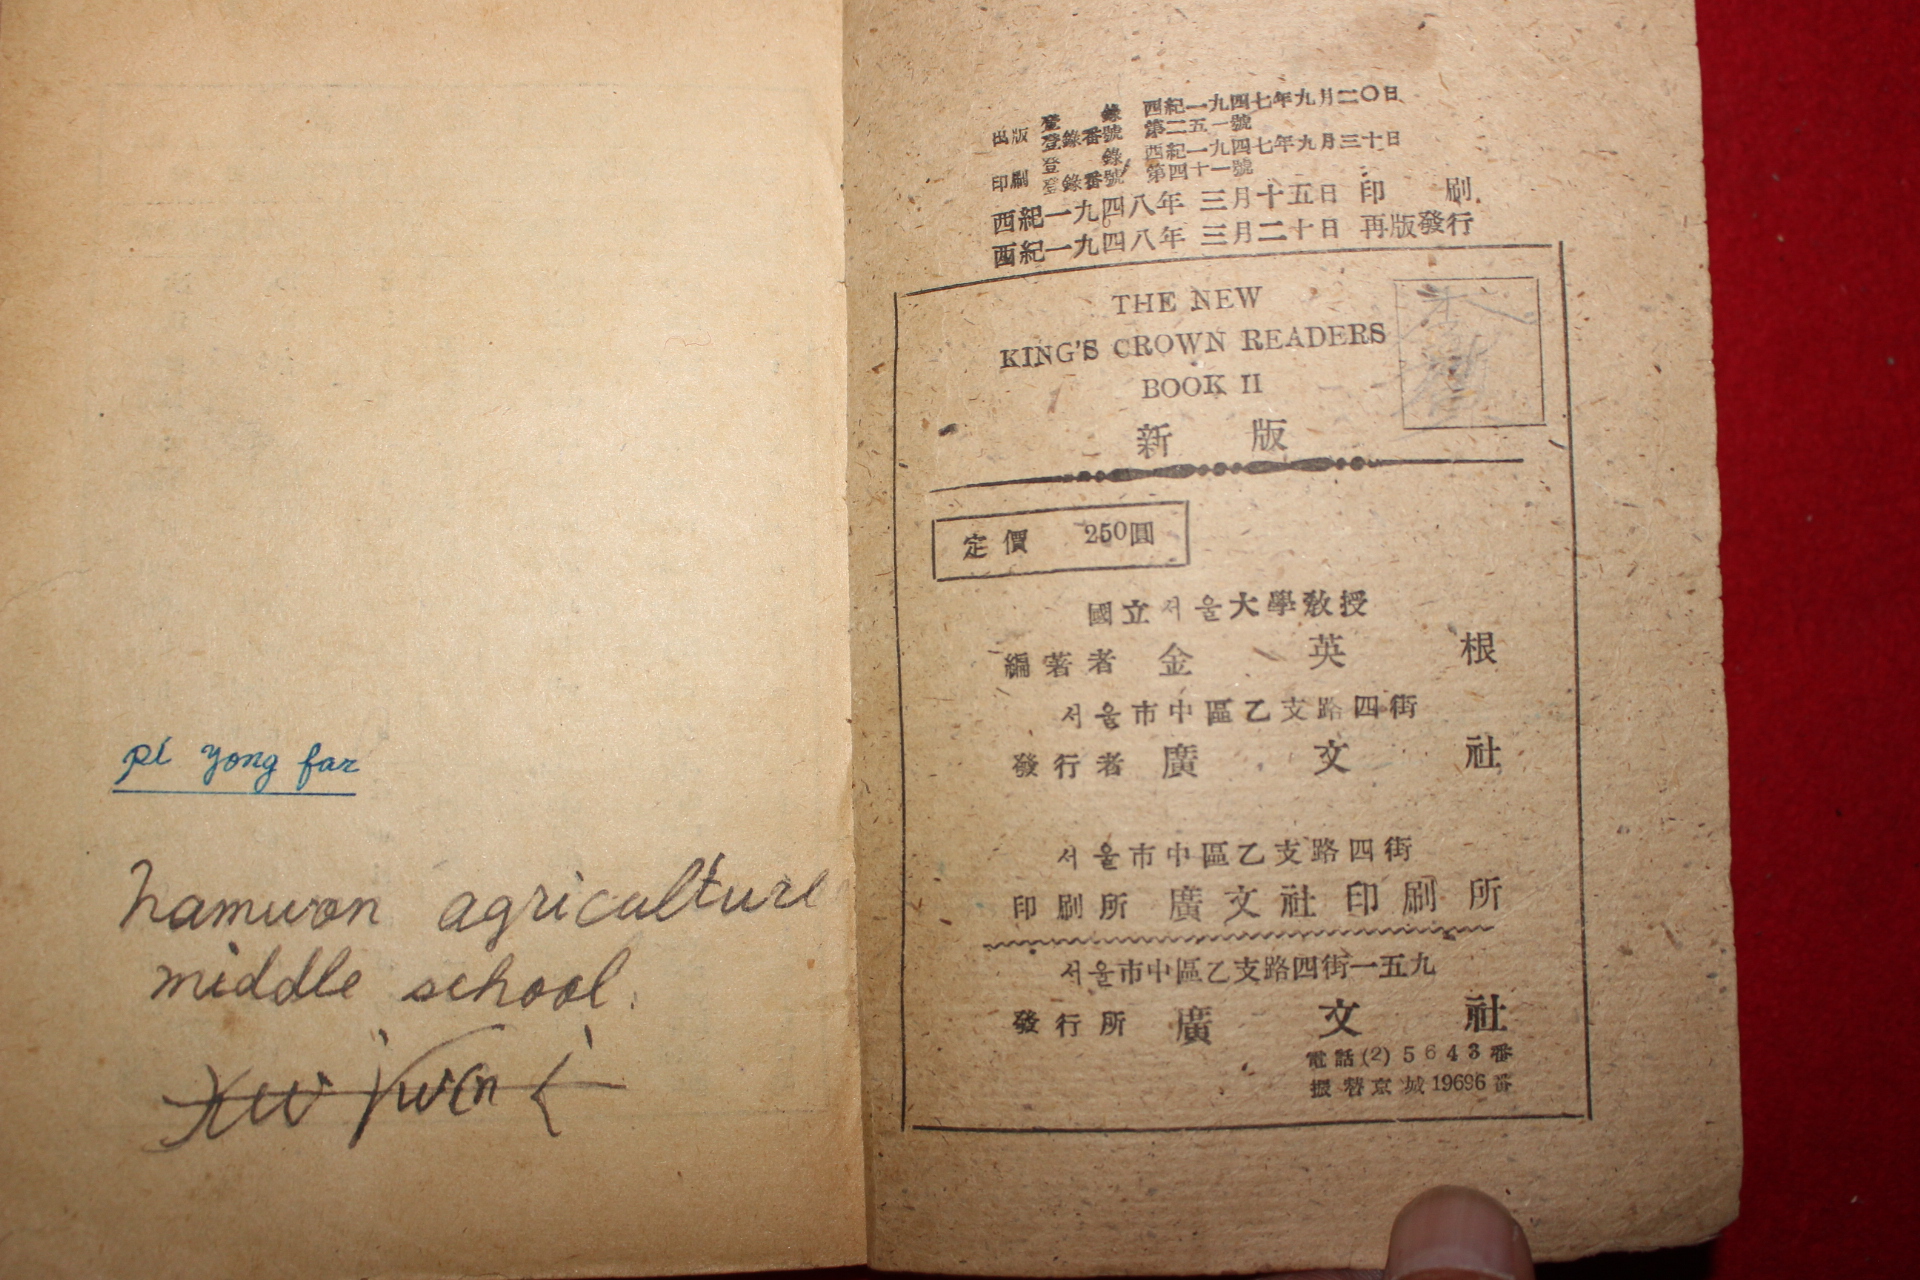 pi yong far
namwon agriculture
middle school.
出版 登錄 西紀一九四七年九月二〇日
登錄番號 第二五一號
印刷 登錄 西紀一九四七年九月三十日
登錄番號 第四十一號
西紀一九四八年 三月十五日 印刷
西紀一九四八年 三月二十日 再版發行
THE NEW
KING'S CROWN READERS
BOOK II
新版
定價 250圓
國立서울大學敎授
編著者 金英根
서울市中區乙支路四街
發行者 廣文社
서울市中區乙支路四街
印刷所 廣文社印刷所
서울市中區乙支路四街一五九
發行所 廣文社
電話(2)5643番
振替京城19696番